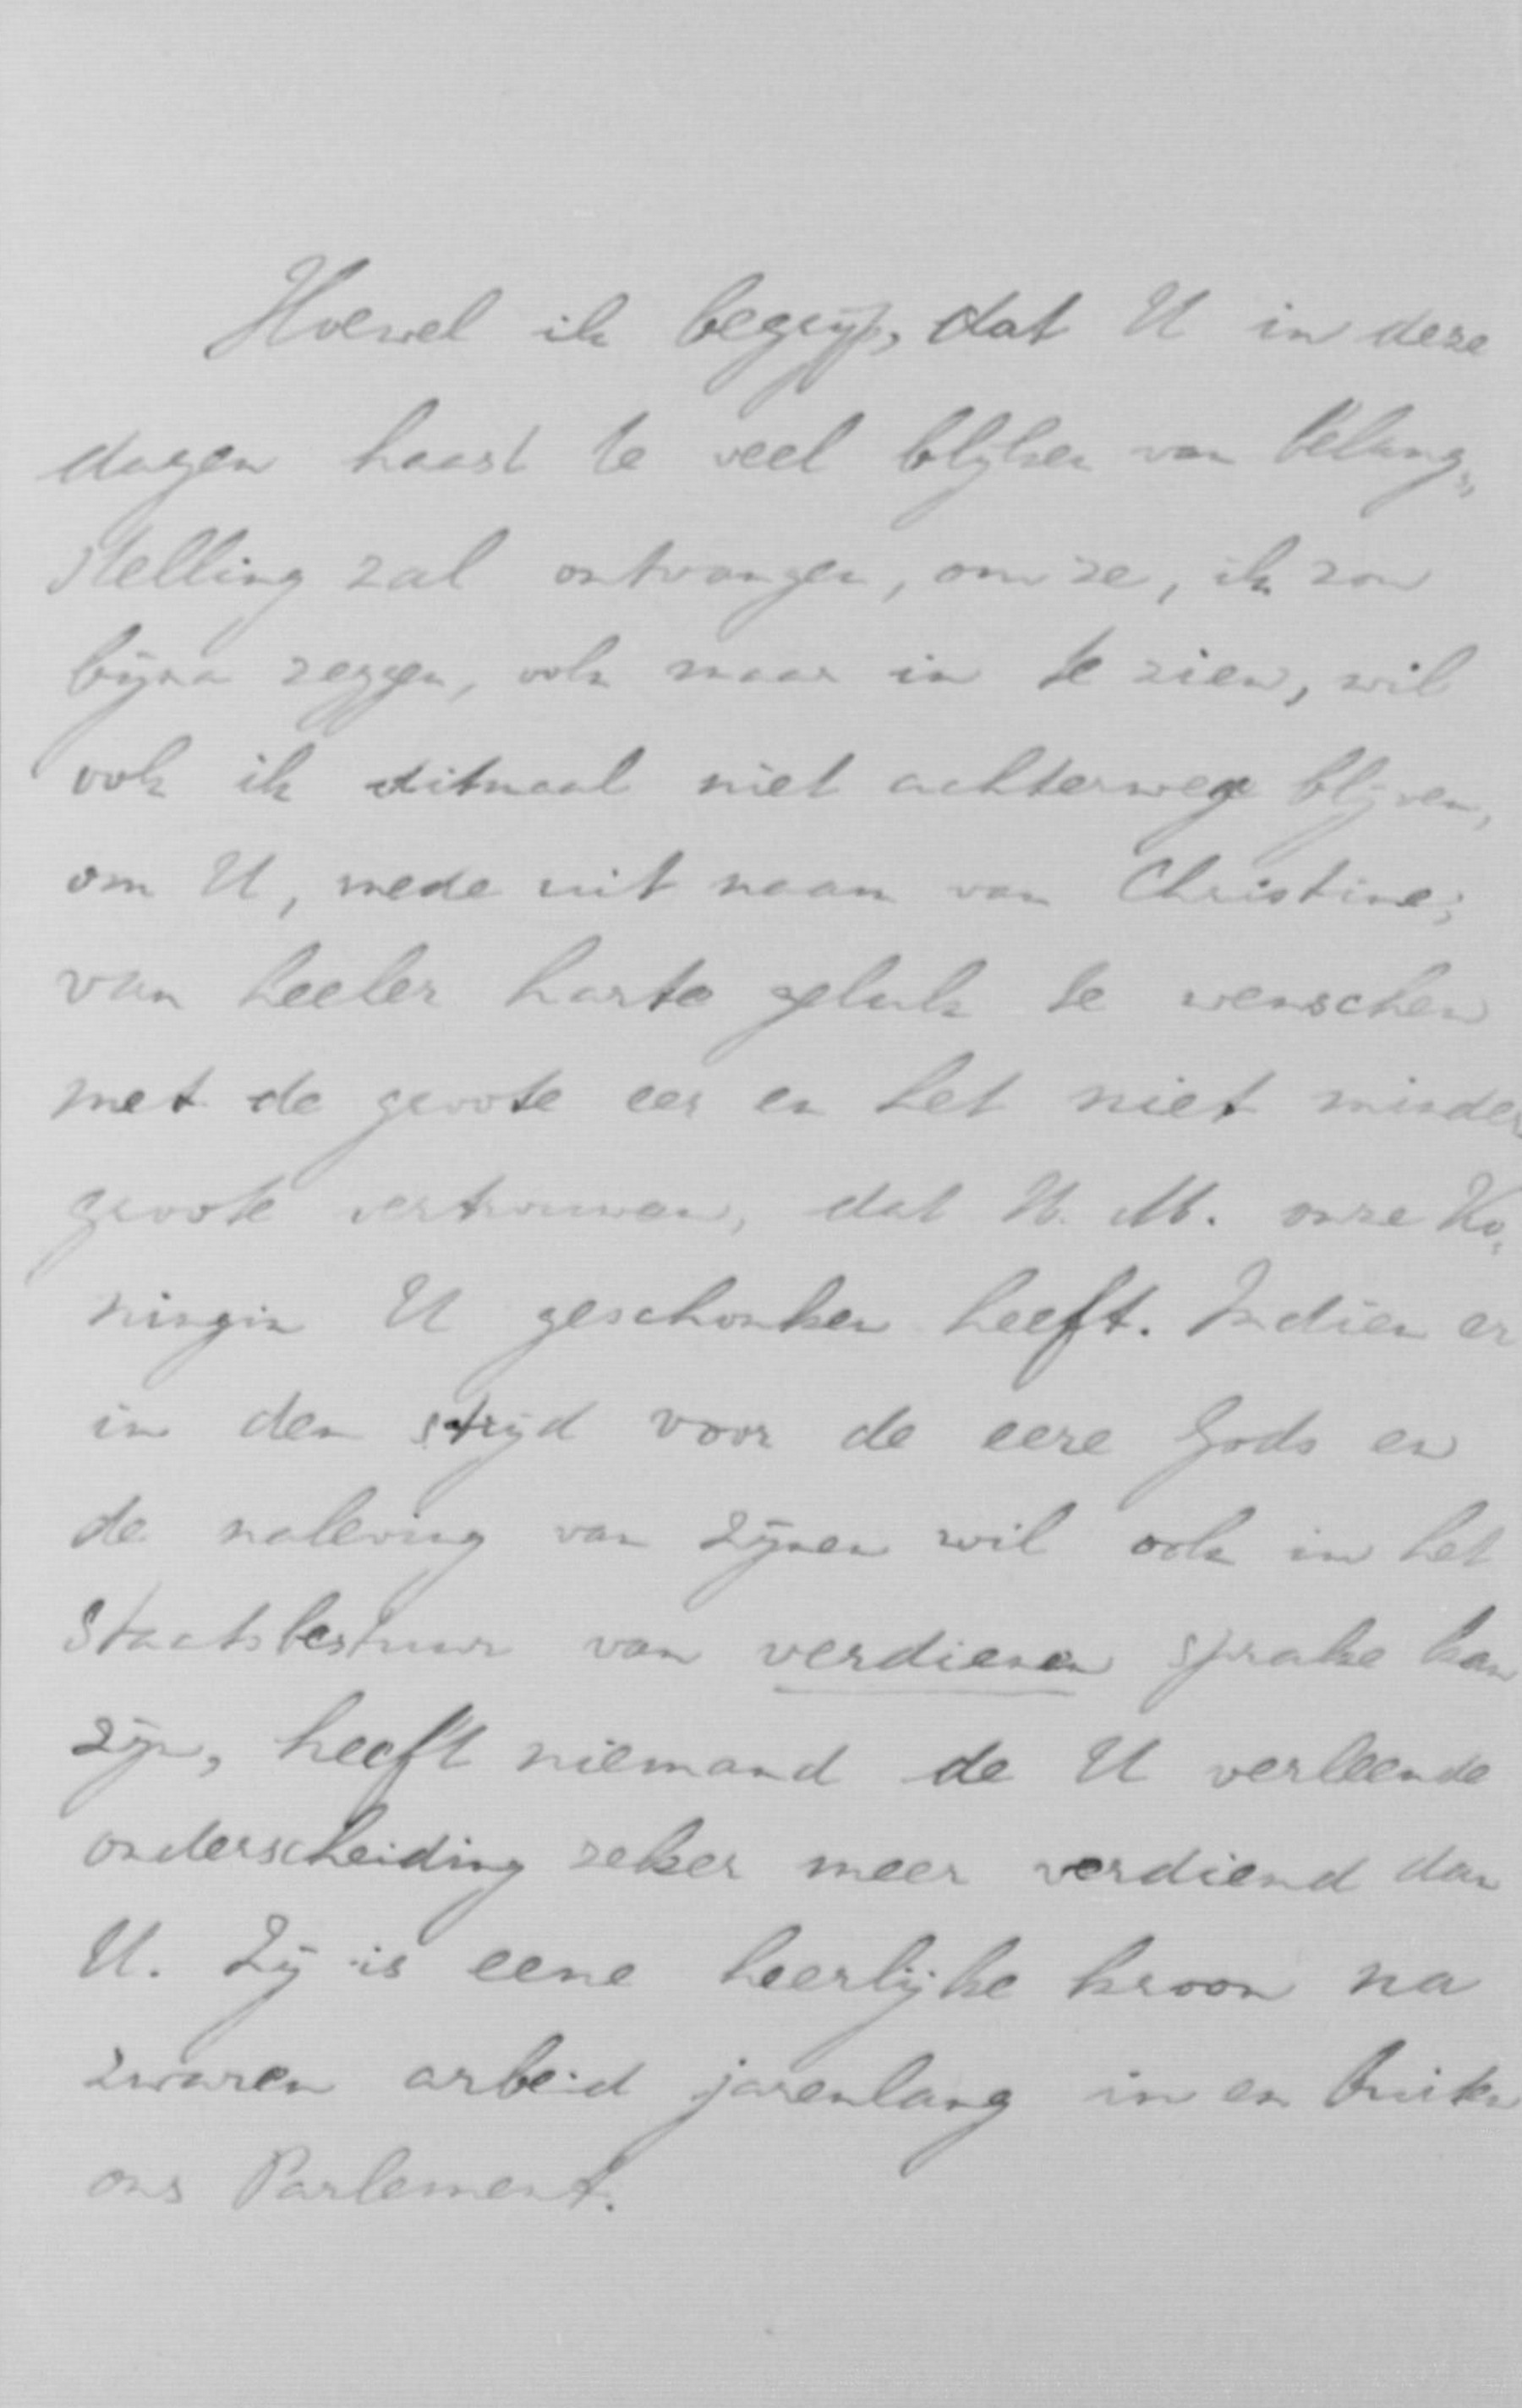 Hoewel ik begrijp, dat U in deze
dagen haast te veel blijken van belang„
stelling zal ontvangen, om ze, ik zou
bijna zeggen, ook maar in te zien, wil
ook ik ditmaal niet achterwege blijven,
om U, mede uit naam van Christine,
van heeler harte geluk te wenschen
met de groote eer en het niet minder
groote vertrouwen, dat H. M. onze Ko„
ningin U geschonken heeft. Indien er
in den strijd voor de eere Gods en
de naleving van Zijnen wil ook in het
Staatsbestuur van verdienen sprake kan
zijn, heeft niemand de U verleende
onderscheiding zeker meer verdiend dan
U. Zij is eene heerlijke kroon na
zwaren arbeid jarenlang in en buiten
ons Parlement.